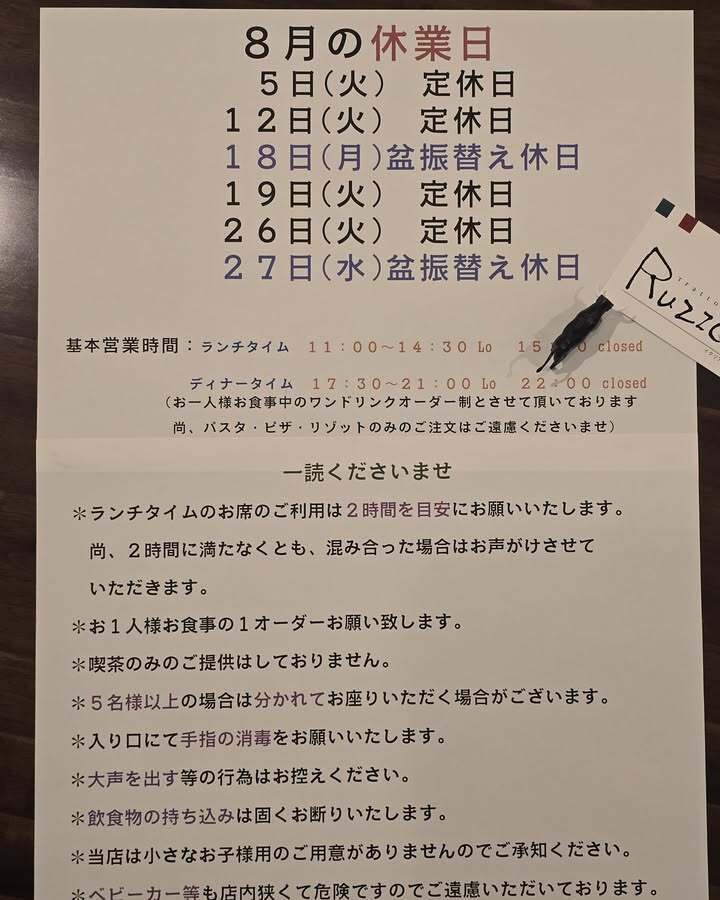 8月の休業日
5日(火) 定休日
12日(火) 定休日
18日(月)盆振替え休日
19日(火) 定休日
26日(火) 定休日
27日(水)盆振替え休日
基本営業時間：ランチタイム 11：00～14：30 Lo closed
ディナータイム 17：30～21：00 Lo 22：00 closed
（お一人様お食事中のワンドリンクオーダー制とさせて頂いております
尚、パスタ・ピザ・リゾットのみのご注文はご遠慮くださいませ）
一読くださいませ
＊ランチタイムのお席のご利用は２時間を目安にお願いいたします。
尚、２時間に満たなくとも、混み合った場合はお声がけさせて
いただきます。
＊お１人様お食事の１オーダーお願い致します。
＊喫茶のみのご提供はしておりません。
＊５名様以上の場合は分かれてお座りいただく場合がございます。
＊入り口にて手指の消毒をお願いいたします。
＊大声を出す等の行為はお控えください。
＊飲食物の持ち込みは固くお断りいたします。
＊当店は小さなお子様用のご用意がありませんのでご承知ください。
＊ベビーカー等も店内狭くて危険ですのでご遠慮いただいております。